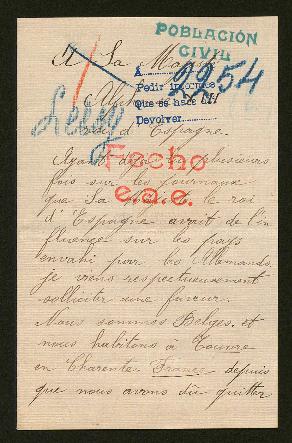 POBLACIÓN
CIVIL
A Sa Majesté
A
Pedir informes
2254
Que se hace
Devolver
roi d'Espagne.
Fecho
e.a.e.
Ayant déjà lu plusieurs
fois sur les journaux
que Sa Majesté le roi
d'Espagne avait de l'in-
fluence sur les pays
envahi par les Allemands,
je viens respectueusement
solliciter une faveur.
Nous sommes Belges, et
nous habitons à Touvre
en Charente France depuis
que nous avons dû quitter